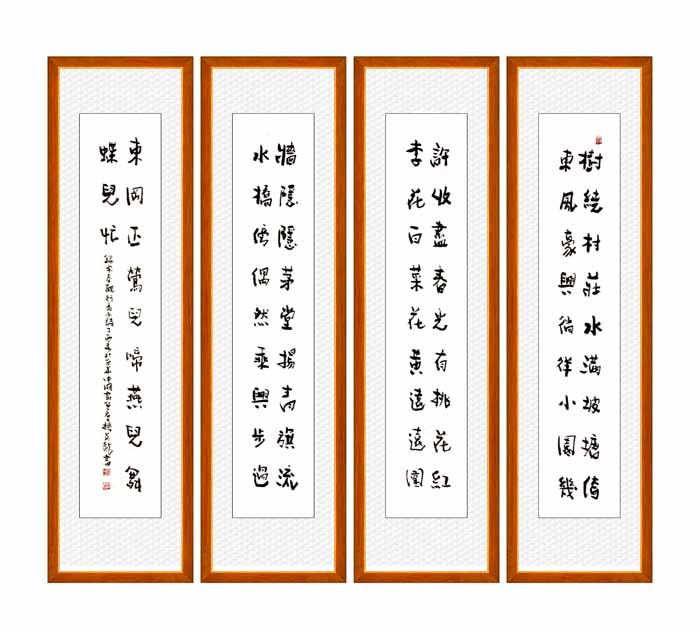 樹繞村莊水滿坡塘倚
東風豪興徜徉小園幾
許收盡春光有桃花紅
李花白菜花黃遠遠圍
牆隱隱茅堂揚青旗流
水橋傍偶然乘興步過
東岡正鶯兒啼燕兒舞
蝶兒忙